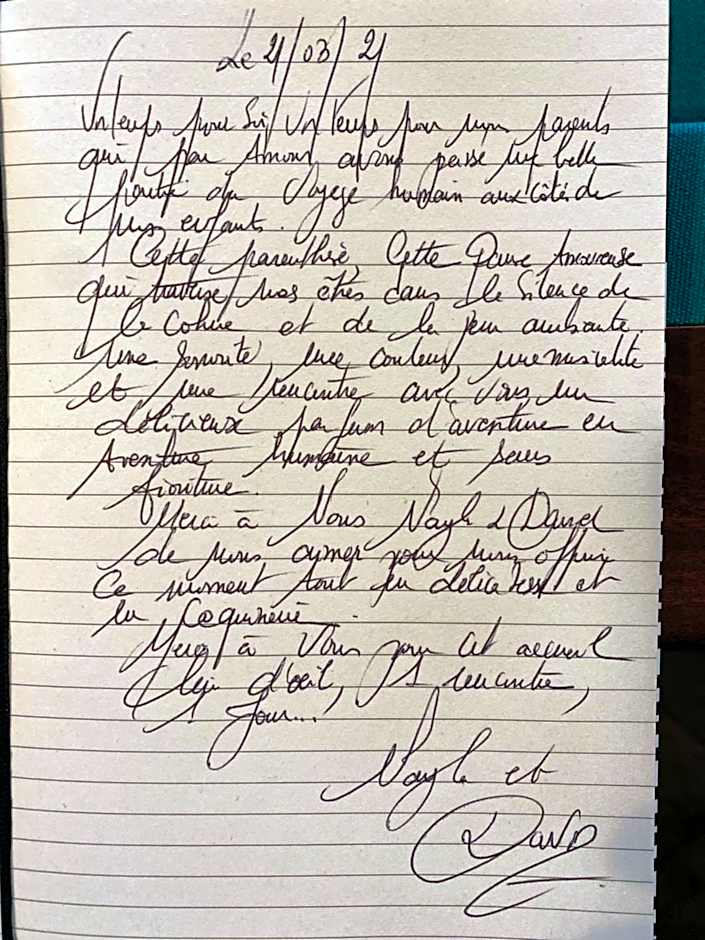 Le 21/03/21
Un temps pour Soi, Un temps pour nous parents
qui par Amour, avons passé une belle
du Voyage humain aux côtés de
nos enfants.
Cette parenthèse, Cette Pause Amoureuse
qui traverse nos êtres dans le Silence de
la Cohue et de la peur ambiante.
une sonorité, une couleur, une musicalité
et une rencontre avec Vous, un
délicieux parfum d'aventure en
Aventure humaine et sans
fioriture.
Merci à Nous Nayla & David
de nous aimer pour nous offrir
Ce moment tout en délicatesse et
en Coquinerie.
Merci à Vous pour cet accueil
Clin d'oeil, 1 rencontre,
1 Jour...
Nayla et
David